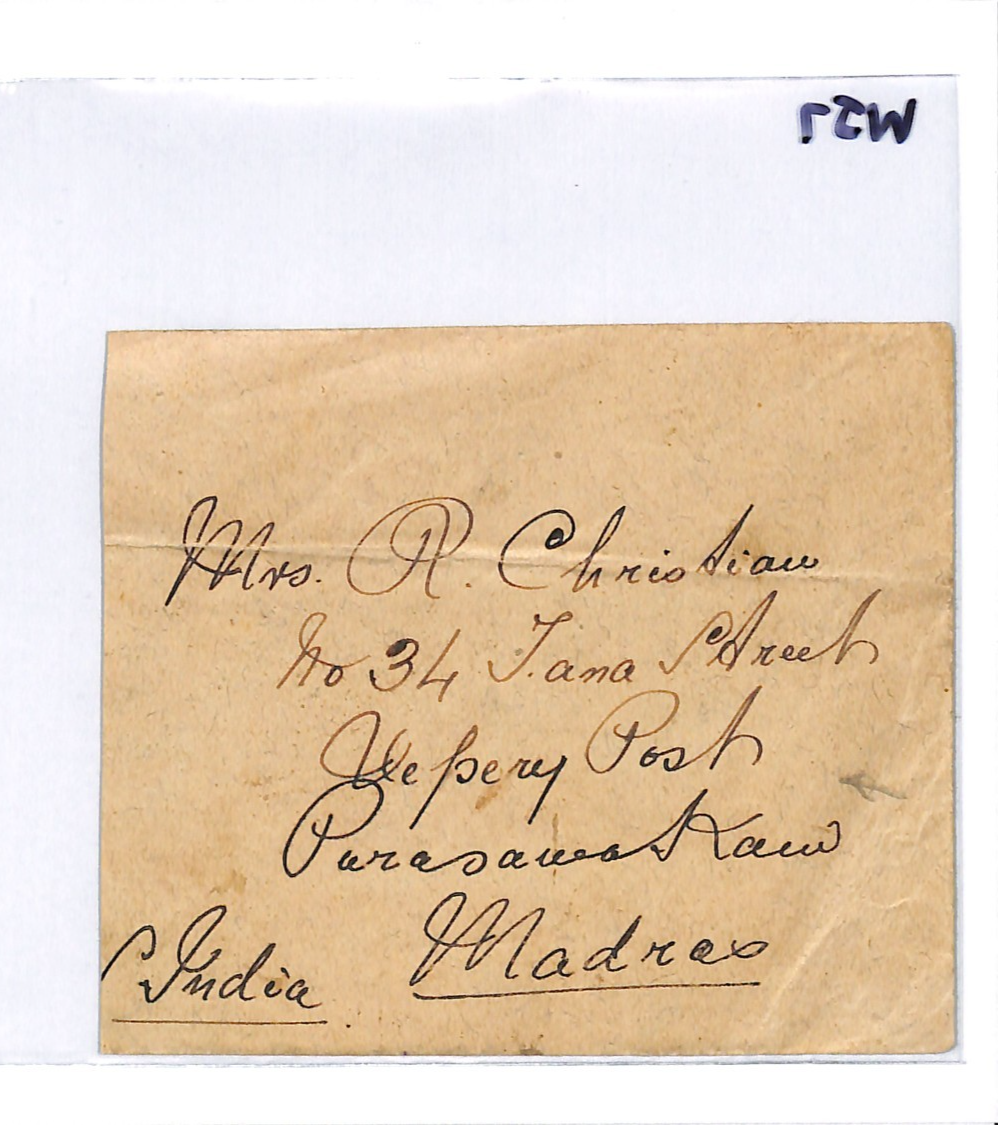 M27
Mrs. R. Christian
No 34 Tana Street
Vepery Post
Purasawakam
Madras
India